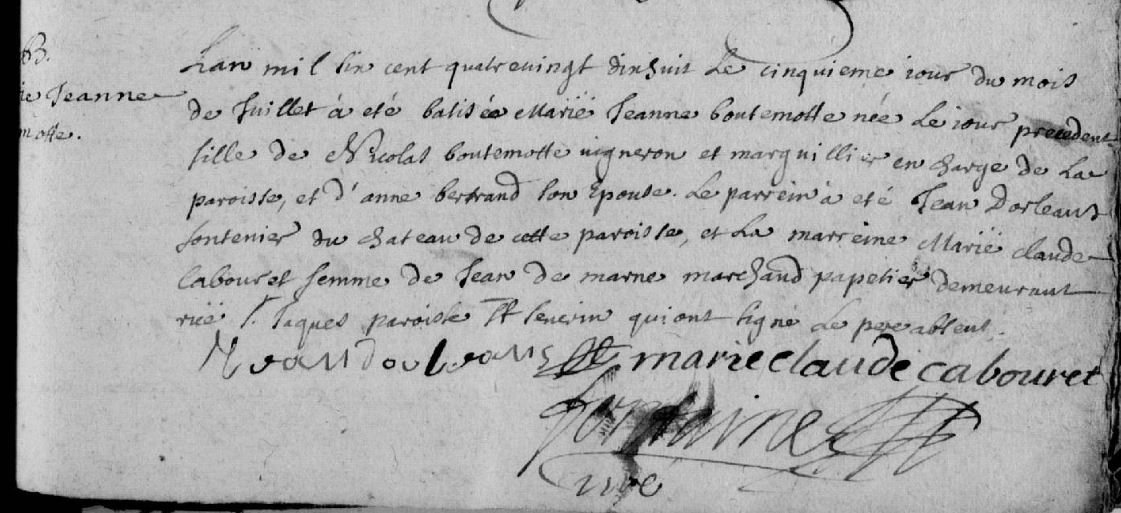 B.
ie Jeanne
motte.
Lan mil six cent quatrevingt dixhuit Le cinquieme iour du mois
de Juillet à eté batisée Marië Jeanne boutemotte née Le iour precedent
fille de Nicolas boutemotte vigneron et marguillier en charge de La
paroisse, et d'anne bertrand son Epouse. Le parrein à eté Jean Dorleans
fontenier du chateau de cette paroisse, et La marreine Marië claude
Cabouret femme de Jean de marne marchand papetier demeurant
rüe St. Jaques paroisse St severin qui ont signé Le pere absent.
Jean dorleans marie claude cabouret
fontaine
curé